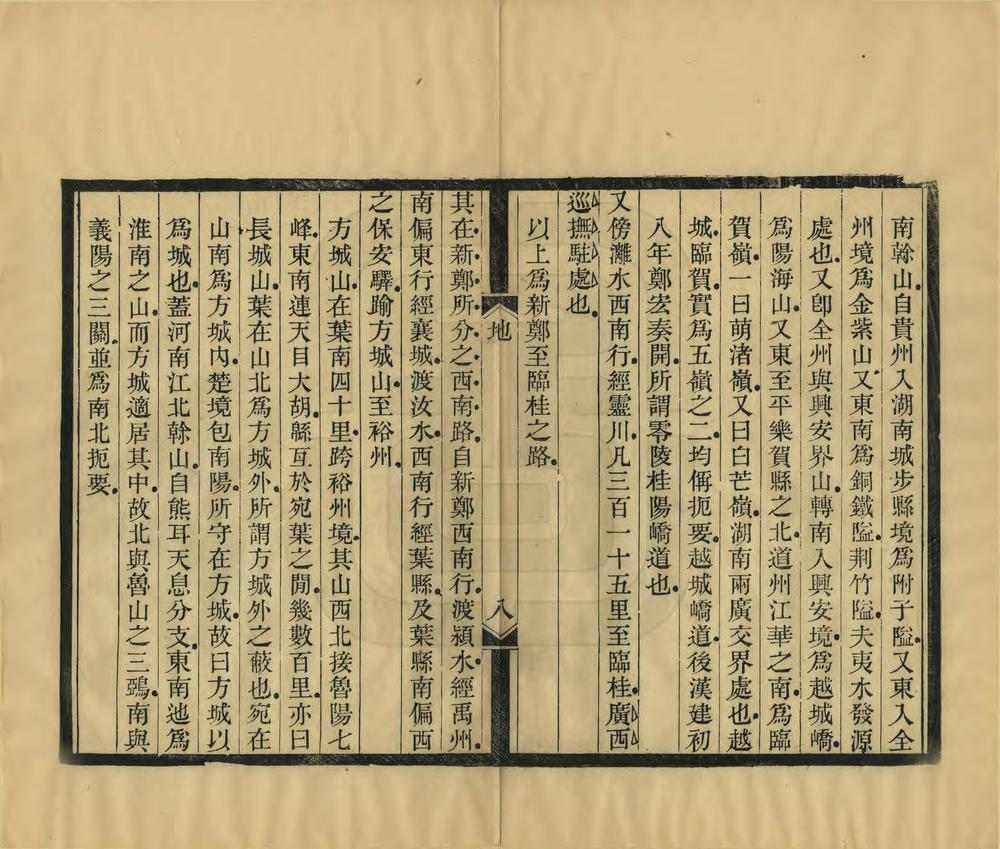 南榦山自貴州入湖南城步縣境爲附子隘又東入全
州境爲金紫山又東南爲銅鐵隘荆竹隘夫夷水發源
處也又卽全州與興安界山轉南入興安境爲越城嶠
爲陽海山又東至平樂賀縣之北道州江華之南爲臨
賀嶺一曰萌渚嶺又曰白芒嶺湖南兩廣交界處也越
城臨賀實爲五嶺之二均偁扼要越城嶠道後漢建初
八年鄭宏奏開所謂零陵桂陽嶠道也
又傍灕水西南行經靈川凡三百一十五里至臨桂廣西
巡撫駐處也
以上爲新鄭至臨桂之路
地
八
其在新鄭所分之西南路自新鄭西南行渡潁水經禹州
南偏東行經襄城渡汝水西南行經葉縣及葉縣南偏西
之保安驛踰方城山至裕州
方城山在葉南四十里跨裕州境其山西北接魯陽七
峰東南連天目大胡緜亙於宛葉之閒幾數百里亦曰
長城山葉在山北爲方城外所謂方城外之蔽也宛在
山南爲方城內楚境包南陽所守在方城故曰方城以
爲城也蓋河南江北榦山自熊耳天息分支東南迆爲
淮南之山而方城適居其中故北與魯山之三鵶南與
義陽之三關並爲南北扼要